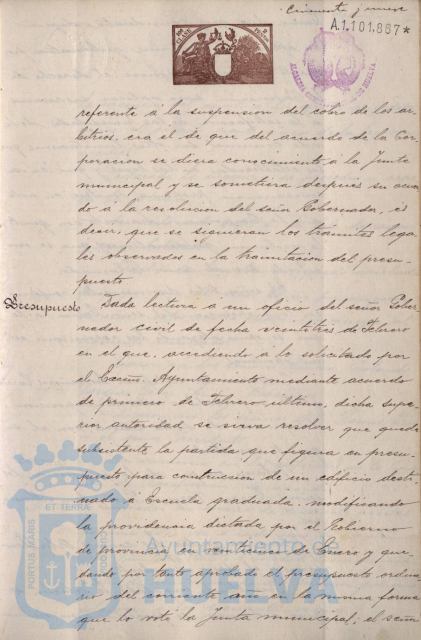 Cincuenta y nueve
A.1.101.867*
ALCALDIA DE HUELVA
referente á la suspension del cobro de los ar-
bitrios, era el de que del acuerdo de la Cor-
poracion se diera conocimiento á la Junta
municipal y se sometiera despues su acuer-
do á la resolucion del señor Gobernador, es
decir, que se siguieran los trámites lega-
les observados en la tramitacion del presu-
puesto.
Presupuesto Dada lectura á un oficio del señor Gober-
nador civil de fecha veintitres de Febrero
en el que, accediendo á lo solicitado por
el Excmo. Ayuntamiento mediante acuerdo
de primero de Febrero último, dicha supe-
rior autoridad se sirve resolver que quede
subsistente la partida que figura en presu-
puesto para construccion de un edificio desti-
nado á Escuela graduada, modificando
la providencia dictada por el Gobierno
de provincia en veinticinco de Enero y que-
dando por tanto aprobado el presupuesto ordina-
rio del corriente año en la misma forma
que lo votó la Junta municipal; el señor
PORTUS MARIS ET TERRAE CUSTODIA
Ayuntamiento de
HUELVA